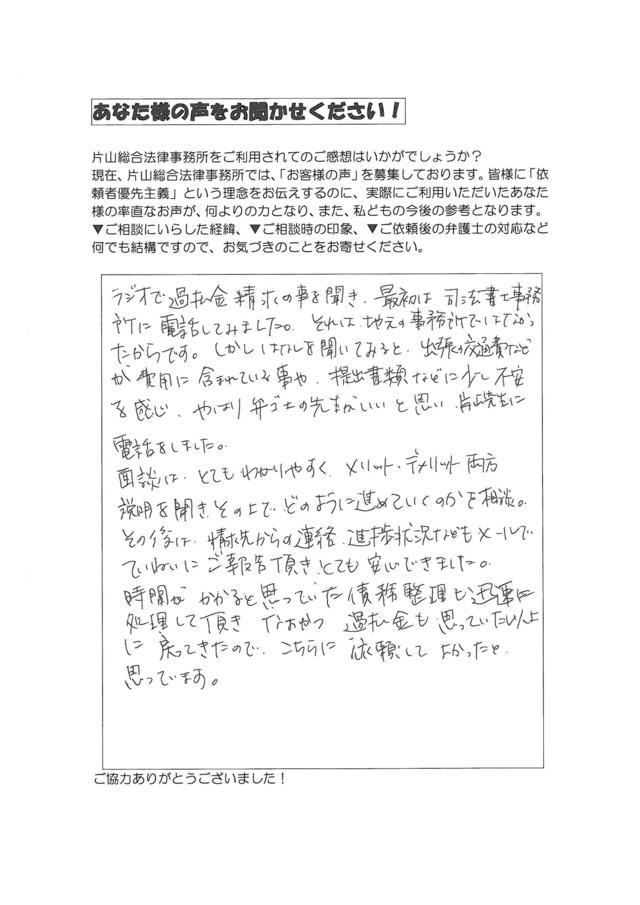 あなた様の声をお聞かせください！
片山総合法律事務所をご利用されてのご感想はいかがでしょうか？
現在、片山総合法律事務所では、「お客様の声」を募集しております。皆様に「依
頼者優先主義」という理念をお伝えするのに、実際にご利用いただいたあなた
様の率直なお声が、何よりの力となり、また、私どもの今後の参考となります。
▼ご相談にいらした経緯、▼ご相談時の印象、▼ご依頼後の弁護士の対応など
何でも結構ですので、お気づきのことをお寄せください。
ラジオで過払金請求の事を聞き、最初は司法書士事務
所に電話してみました。それは地元の事務所ではなかっ
たからです。しかしはなしを聞いてみると、出張の交通費など
が費用に含まれている事や、提出書類などに少し不安
を感じ、やはり弁ゴ士の先生がいいと思い、片山先生に
電話をしました。
面談は、とてもわかりやすく、メリット・デメリット両方
説明を聞き、その上でどのように進めていくのかを相談。
その後は、請求先からの連絡、進捗状況などもメールで
ていねいにご報告頂き、とても安心できました。
時間がかかると思っていた債務整理も迅速に
処理して頂き なおかつ 過払金も思っていた以上
に戻ってきたので、こちらに依頼してよかったと
思ってます。
ご協力ありがとうございました！